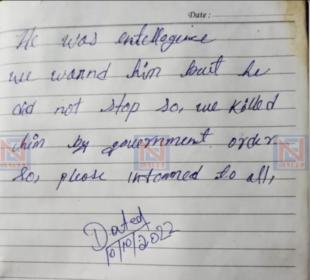 Date :
He was entellogence
we wannd him but he
did not stop so, we killed
him by government order
so, please intomred to all,
Dated
10/10/2022